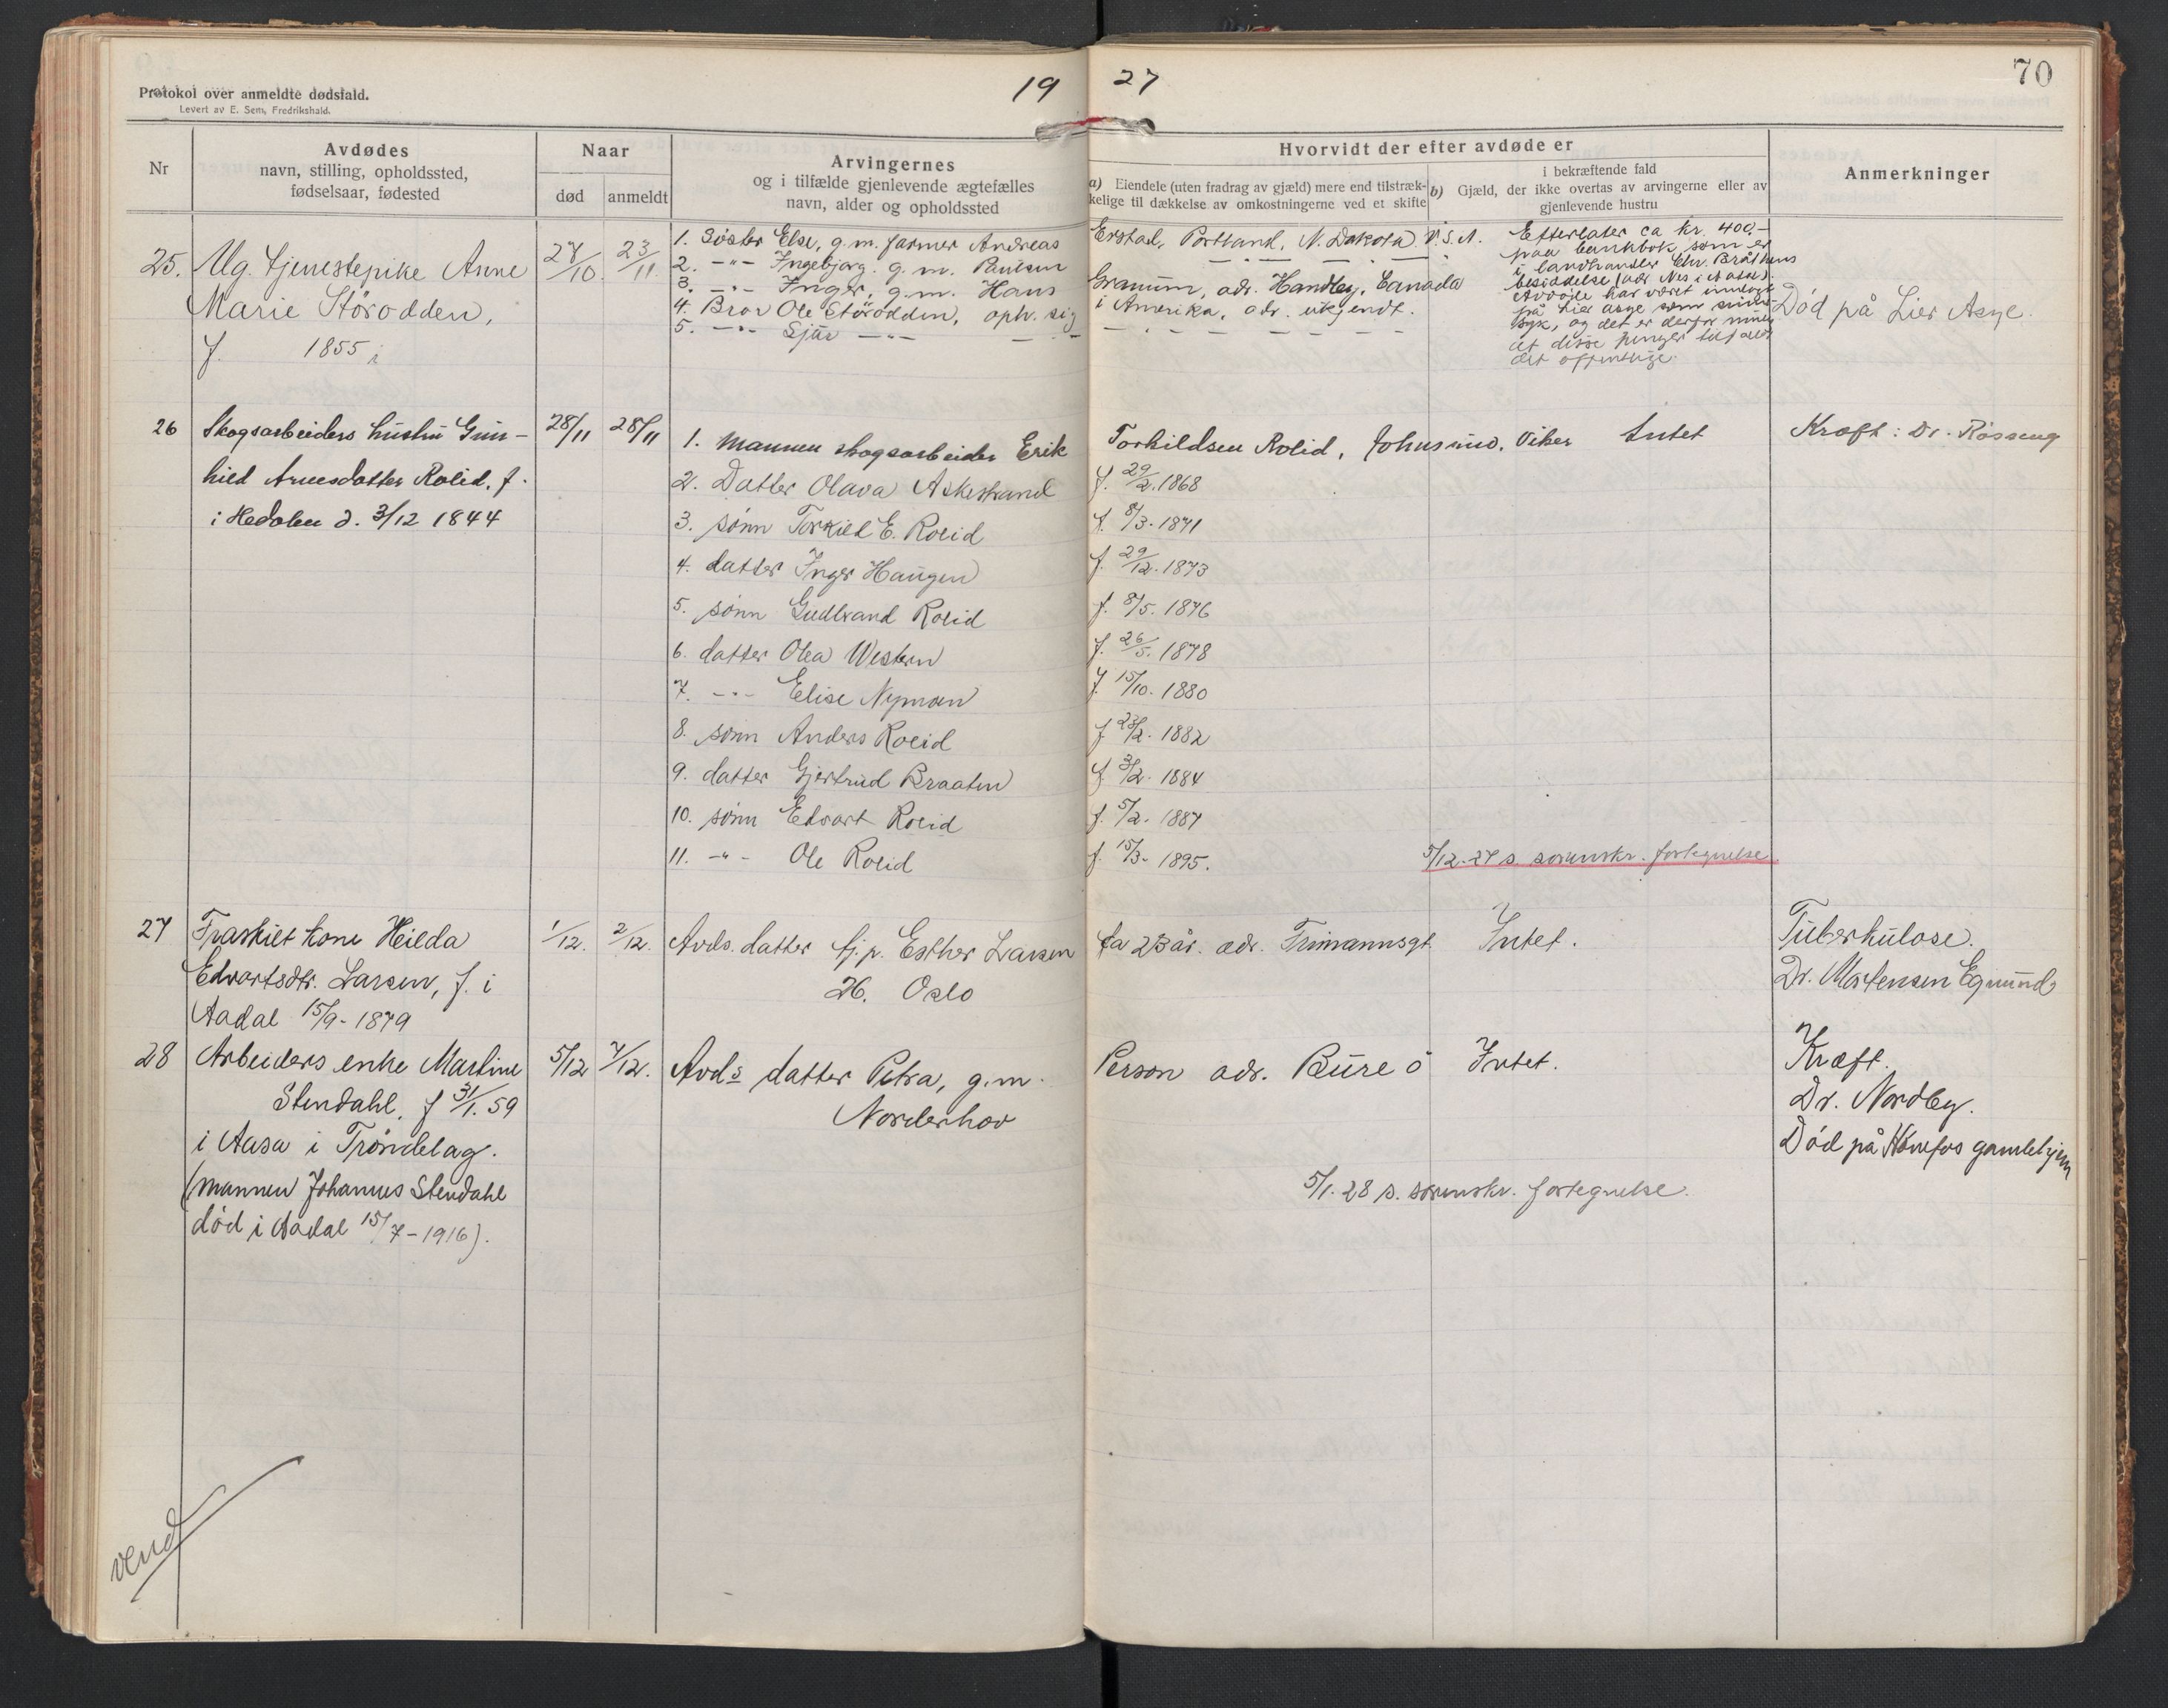 Protokol over anmeldte dødsfald.
Levert av E. Sem, Fredrikshald.
19 27
70
Nr
Avdødes
navn, stilling, opholdssted,
fødselsaar, fødested
Naar
død
anmeldt
Arvingernes
og i tilfælde gjenlevende ægtefælles
navn, alder og opholdssted
Hvorvidt der efter avdøde er
a) Eiendele (uten fradrag av gjæld) mere end tilstræk-
kelige til dækkelse av omkostningerne ved et skifte
i bekræftende fald
b) Gjæld, der ikke overtas av arvingerne eller av
gjenlevende hustru
Anmerkninger
25. Ug. tjenestepike Anne
Marie Störodden,
f. 1855 i
27/10. 23/11.
1. Søster Else, g.m. farmer Andreas Erstad, Portland, N. Dakota U.S.A.
2. -"- Ingebjørg. g.m. Paulsen — " — " —
3. -"- Inger, g.m. Hans Granum, adr. Handley, Canada
4. Bror Ole Störodden, oph. sig i Amerika, adr. ukjendt.
5. -"- Sjur -"- — " —
Efterlater ca kr. 400,-
paa bankbok som er
i landhandler Chr. Bråthens
besiddelse (adr Nes i Ådal).
Avdøde har været
på Lier asyl som sinds-
syk, og det er derfor
at disse penger
det offentlige.
Død på Lier Asyl.
26 Skogsarbeiders hustru Gun-
hild Arnesdatter Rolid, f.
i Hedalen d. 3/12 1844
28/11 28/11
1. Mannen skogsarbeider Erik Torkildsen Rolid, Viker
Intet
Kræft: Dr. Røsseng
2. Datter Olava Askestrand f. 29/2. 1868
3. sönn Torkild E. Rolid f. 8/3. 1871
4. datter Inger Haugen f. 29/12. 1873
5. sönn Gudbrand Rolid f. 8/5. 1876
6. datter Olea Western f. 26/5. 1878
7. -"- Elise Nymoen f. 15/10. 1880
8. sönn Anders Rolid f. 23/2. 1882
9. datter Gjertrud Braaten f. 3/2. 1884
10. sönn Edvart Rolid f. 5/2. 1887
11. -"- Ole Rolid f. 15/3. 1895.
5/12-27 s. sorenskr. fortegnelse
27 Fraskilt kone Hilda
Edvartsdtr. Larsen, f. i
Aadal 15/9-1879
1/12. 2/12.
Avds. datter tj.p. Esther Larsen ca 23 år. adr. Frimannsgt.
26. Oslo
Intet.
Tuberkulose.
Dr. Mortensen Egnund
28 Arbeiders enke Martine
Stendahl, f 31/1. 59
i Aasa i Trøndelag.
(mannen Johannes Stendahl
död i Aadal 15/7-1916).
5/12 7/12.
Avds datter Petra, g.m. Person adr. Bure ö
Norderhov
Intet.
Kræft.
Dr. Nordby.
Död på Hönefos gamlehjem
5/1. 28 s. sorenskr. fortegnelse.
vend